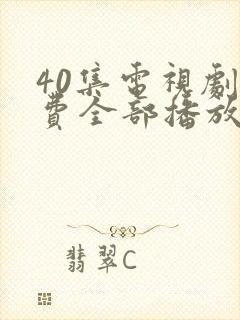 40集電視劇
費全部播放
翡翠C